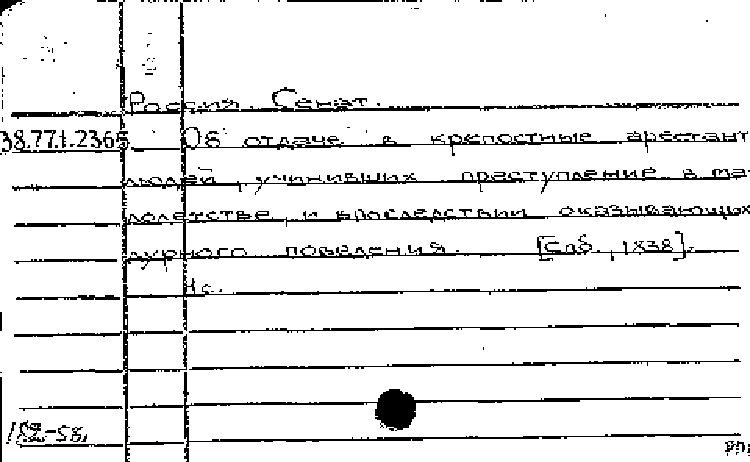 Россия. Сенат.
38.77.1.2365 Об отдаче в крепостные арестант
людей, учинивших преступление в ма-
лолетстве и впоследствии оказывающих
дурного поведения. [Спб., 1838].
4с.
182-58.